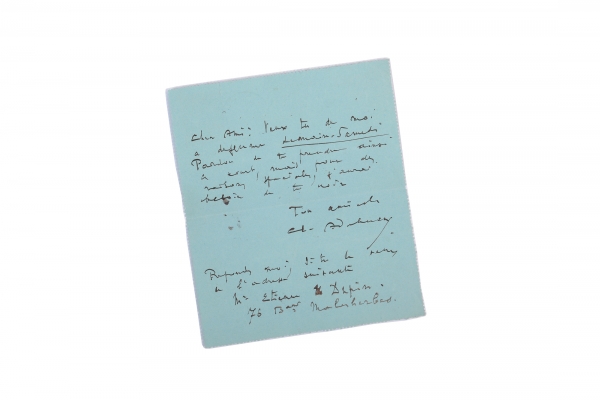 Cher Ami: Veux tu de moi
a déjeuner demain-Samedi
Pardon de te prendre ainsi
de court, mais, pour des
raisons spéciales, j'aurai
besoin de te voir
Ton ami
Ch.
Réponds moi,
à l'adresse suivante
Mr Etienne Dupin.
76 Bard Malesherbes.